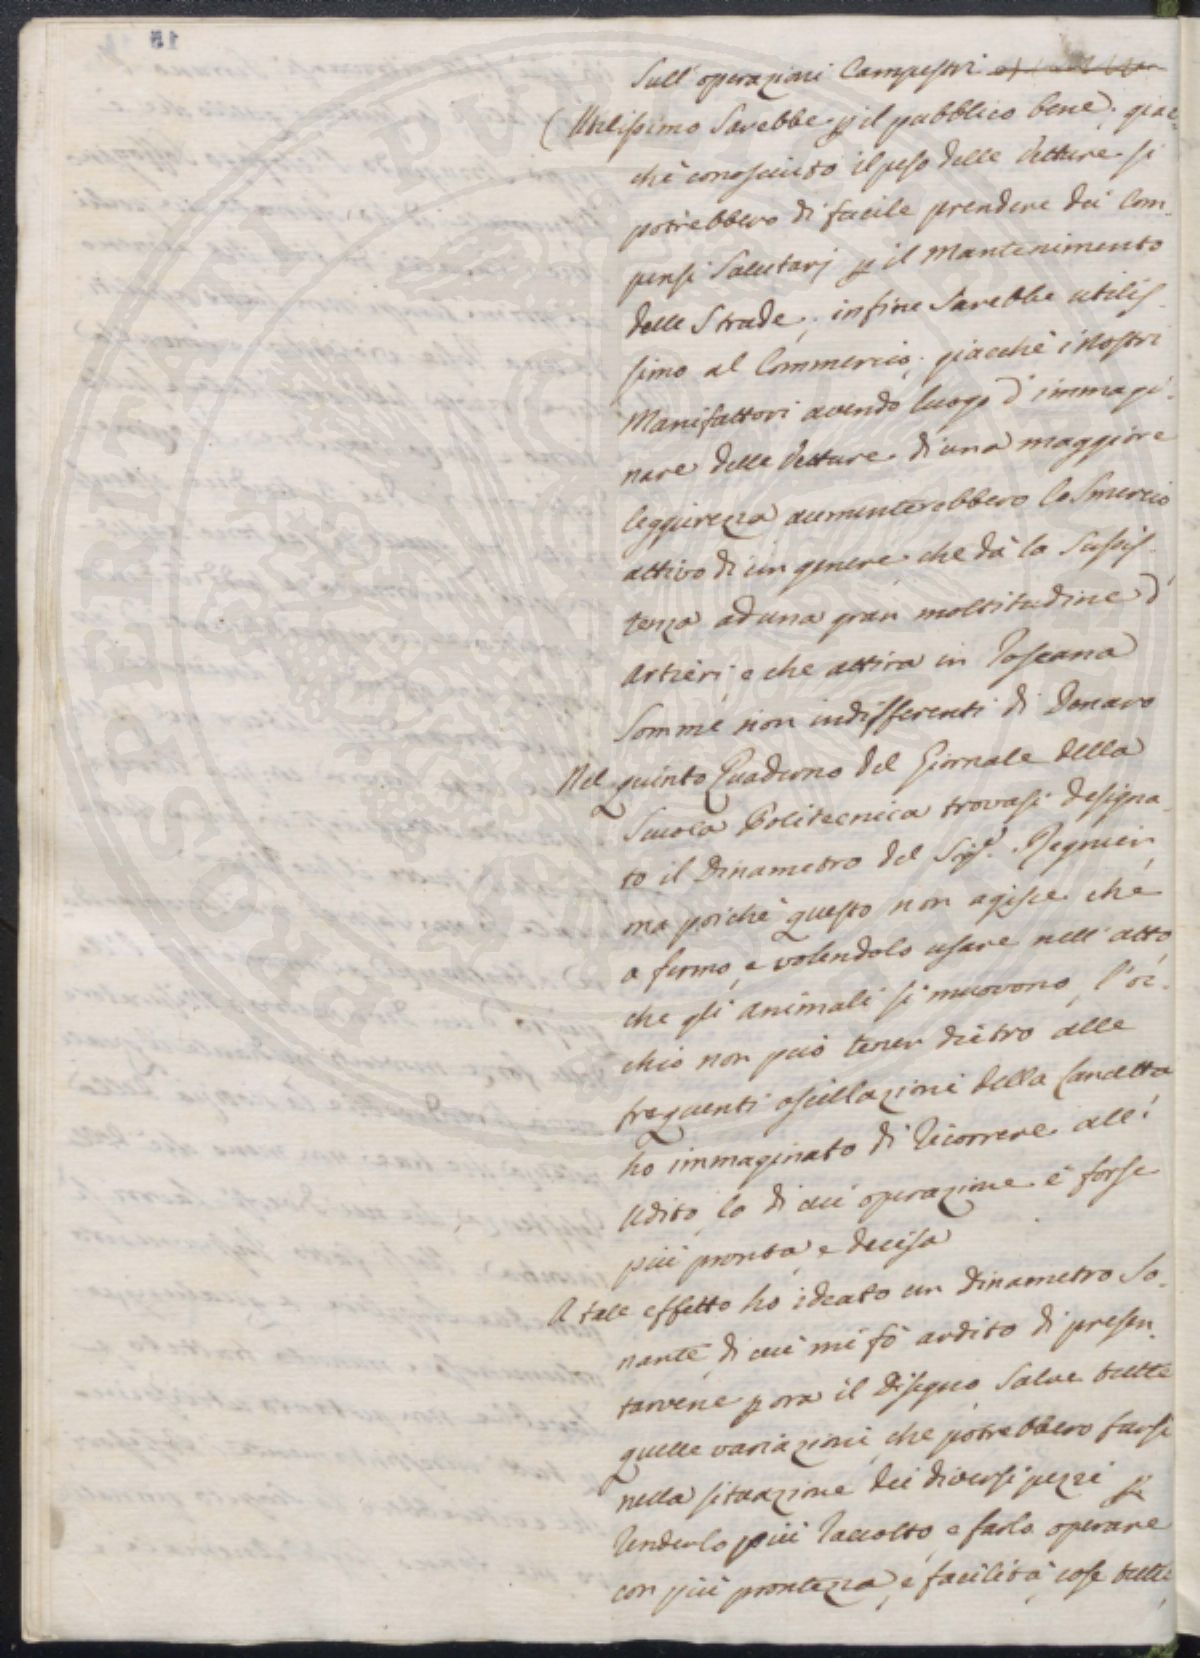 Sull'operazioni Campestri
(Utilissimo Sarebbe p il pubblico bene, giac-
chè conosciuto il peso delle Vetture si
potrebbero di facile prendere dei Com-
pensi Salutarj p il Mantenimento
delle Strade, infine Sarebbe utilis-
simo al Commercio, giacchè i Nostri
Manifattori avendo luogo d'immagi-
nare delle Vetture di una maggiore
leggierezza aumenterebbero lo Smercio
attivo di un genere che dà la Sussis-
tenza ad una gran moltitudine d'
Artieri, e che attira in Toscana
Somme non indifferenti di Danaro
Nel quinto Quaderno del Giornale della
Scuola Politecnica trovasi designa-
to il Dinametro del Sig.r Regnier,
ma poichè questo non agisce che
a fermo, e volendolo usare nell'atto,
che gli Animali si muovono, l'oc-
chio non può tener dietro alle
frequenti oscillazioni della Lancetta
ho immaginato di Ricorrere all'
Udito, la di cui operazione è forse
più pronta, e decisa
A tale effetto ho ideato un Dinametro So-
nante, di cui mi fò ardito di presen-
tarvene p ora il Disegno, Salve tutte
quelle variazioni, che potrebbero farsi
nella situazione dei diversi pezzi p
Renderlo più Raccolto, e farlo operare
con più prontezza, e facilità, cose tutte,
PROSPERITATI PUBLICAE
15